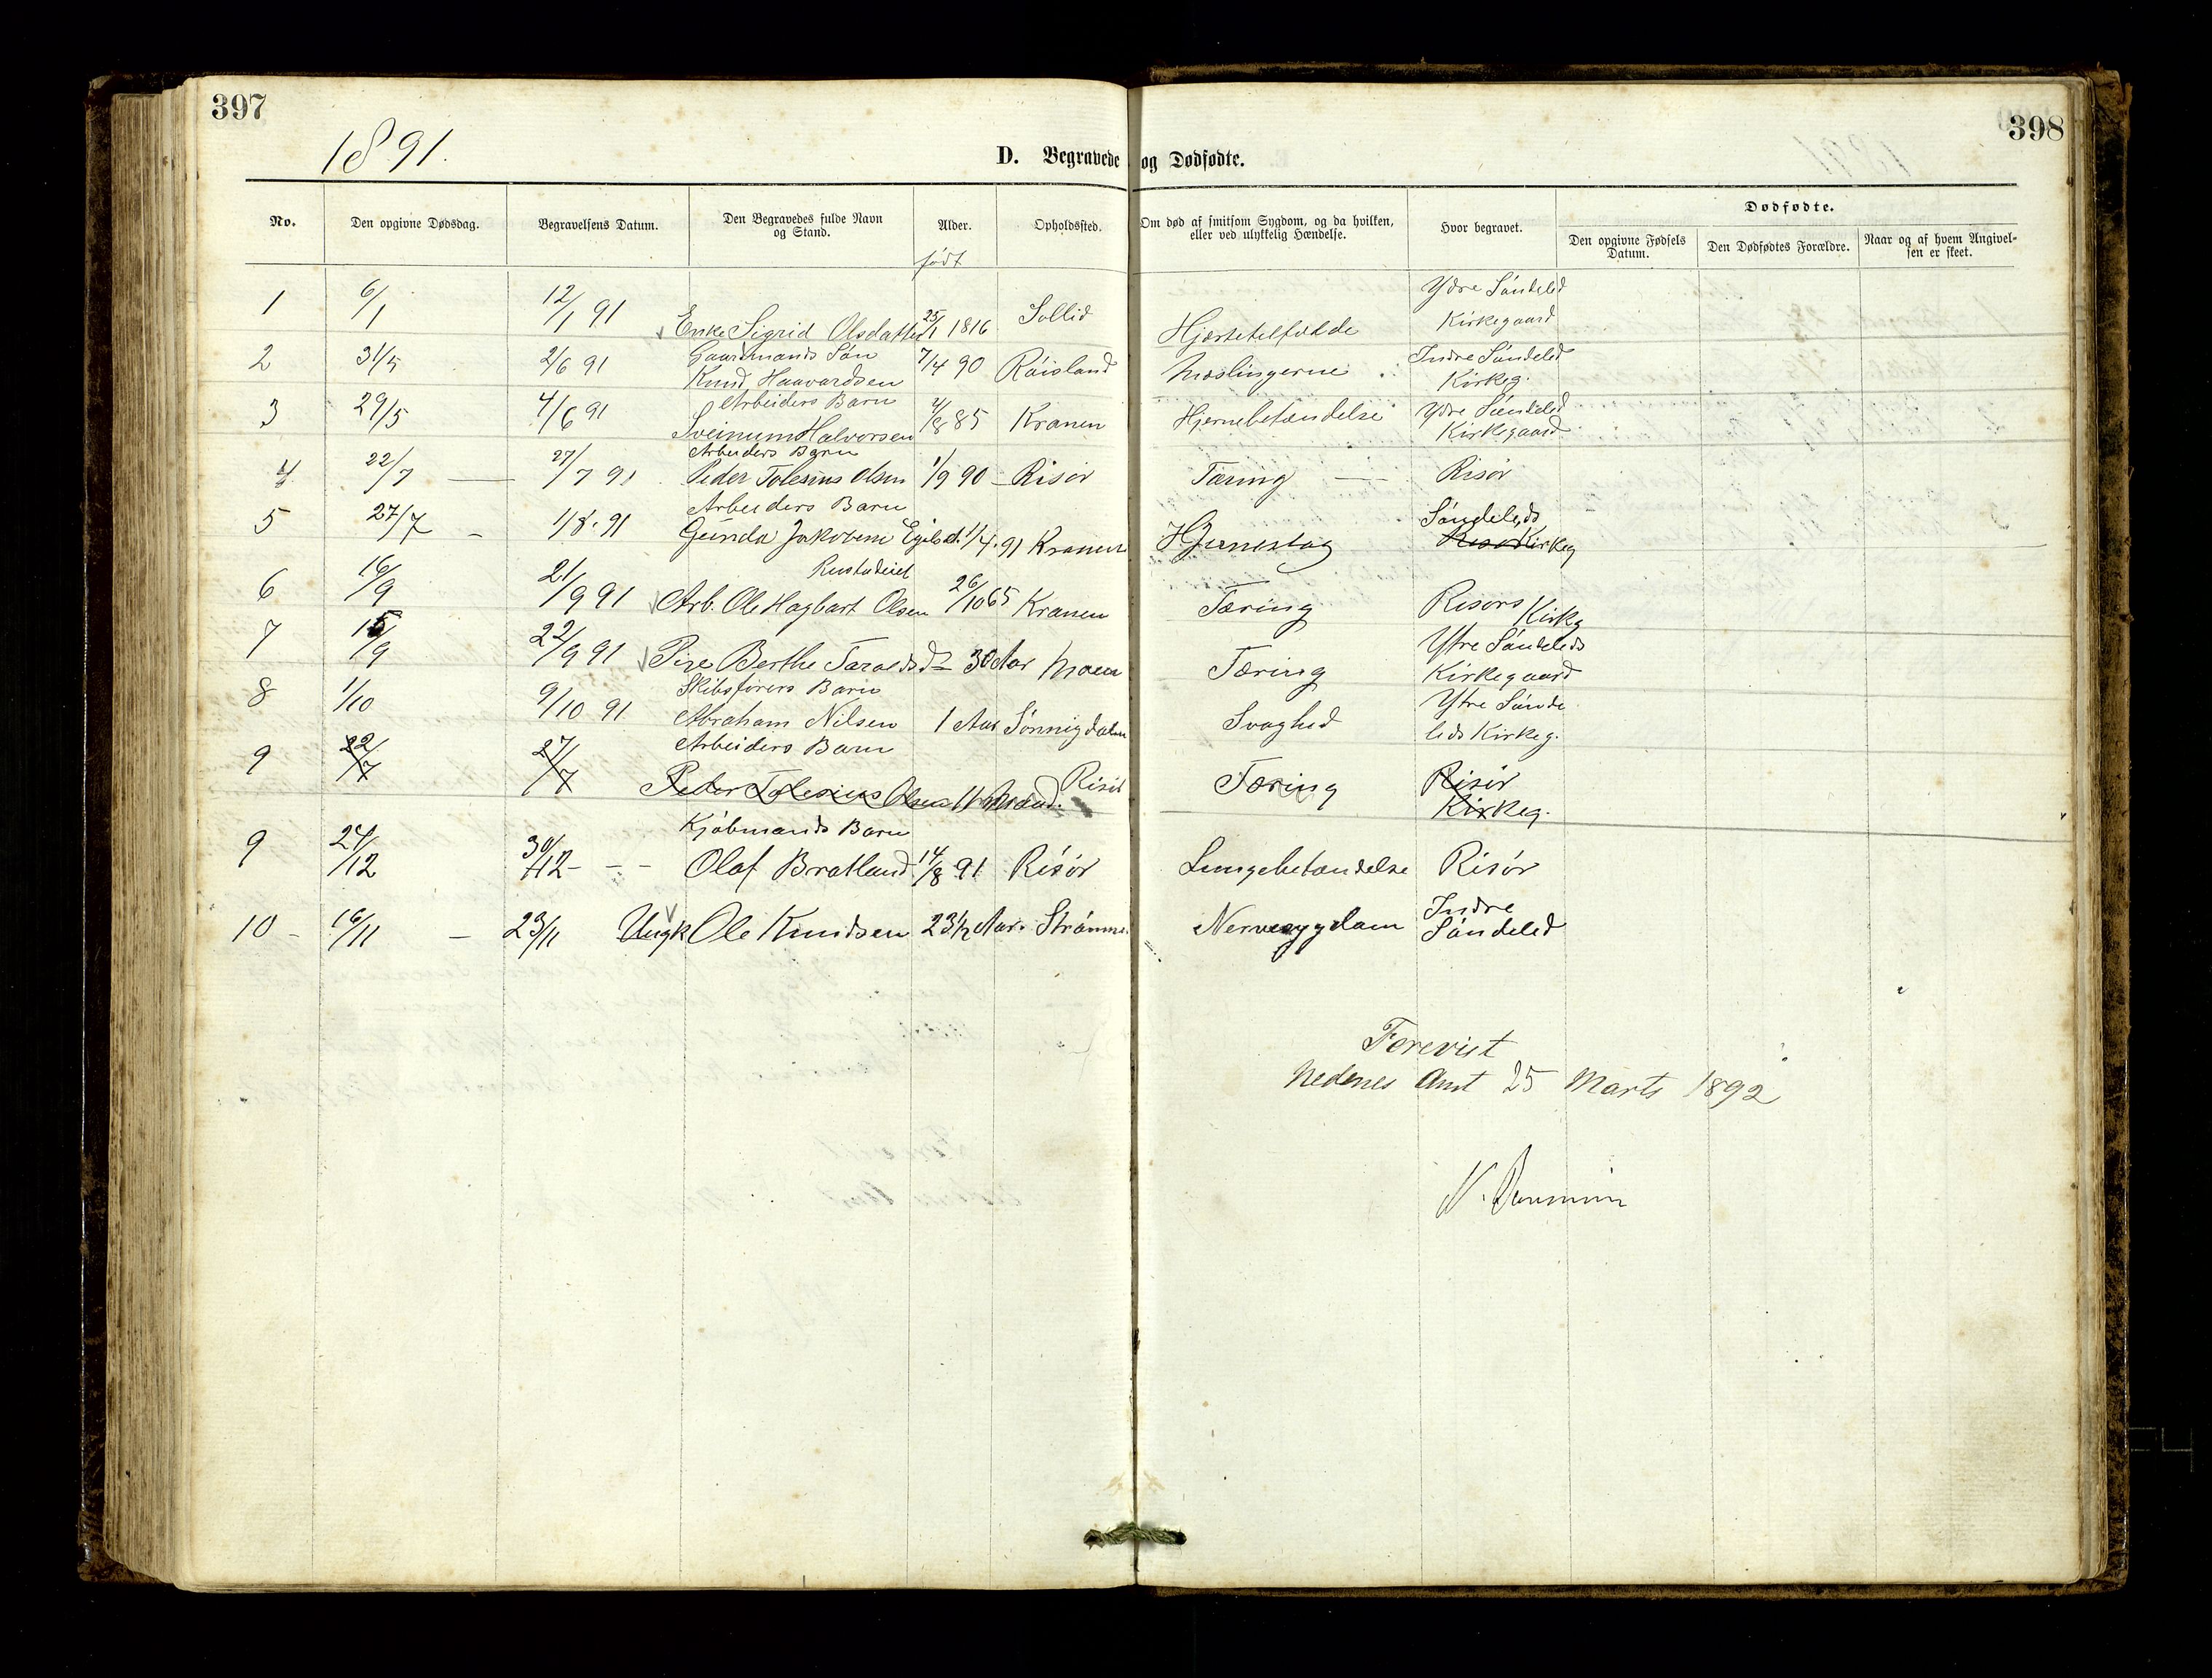 397
398
1891.
D. Begravede og Dødfødte.
No.
Den opgivne Dødsdag.
Begravelsens Datum.
Den Begravedes fulde Navn
og Stand.
Alder.
Opholdssted.
Om død af smitsom Sygdom, og da hvilken,
eller ved ulykkelig Hændelse.
Hvor begravet.
Dødfødte.
Den opgivne Fødsels
Datum.
Den Dødfødtes Forældre.
Naar og af hvem Angivel-
sen er skeet.
født
Ydre Søndeled
1 6/1 12/1 91 Enke Sigrid Olsdatter 25/1 1816 Sollid Hjertetilfælde Kirkegaard
Gaardmands Søn Indre Søndeled
2 31/5 2/6 91 Knud Haavardsen 7/4 90 Røisland Mæslingerne Kirkeg.
Arbeiders Barn Ydre Søndeled
3 29/5 4/6 91 Sveinum Halvorsen 2/8 85 Kranen Hjernebetændelse Kirkegaard
Arbeiders Barn
4 22/7 — 27/7 91 Peder Tolesius Olsen 1/9 90 – Risør Tæring — Risør
Arbeiders Barn Søndeleds
5 27/7 – 1/8. 91 Gunda Jakobine Egilsd. 1/4. 91 Kranen Hjerneslag Risør Kirkeg
6 16/9 21/9 91 Arb. Ole Hagbart Olsen 26/10 65 Kranen Tæring Risørs Kirkg
Ytre Søndeleds
7 15/9 22/9 91 Pige Berthe Taraldsd. 30 Aar Moen Tæring Kirkegaard
Skibsførers Barn Ytre Sønde
8 1/10 9/10 91 Abraham Nilsen 1 Aar Sønnigdalen Svaghed leds Kirkeg.
Arbeiders Barn
9 22/7 27/7 Peder Tolesius Olsen 11 Maaned. Risør Tæring Risør
Kirkeg.
Kjøbmands Barn
9 24/12 30/12 – – Olaf Bratland 14/8 91 Risør Lungebetændelse Risør
Indre
10 – 16/11 – 23/11 Ungk Ole Knudsen 23½ Aar. Strømme. Nervesygdom Søndeled
Forevist
Nedenes Amt 25 Marts 1892